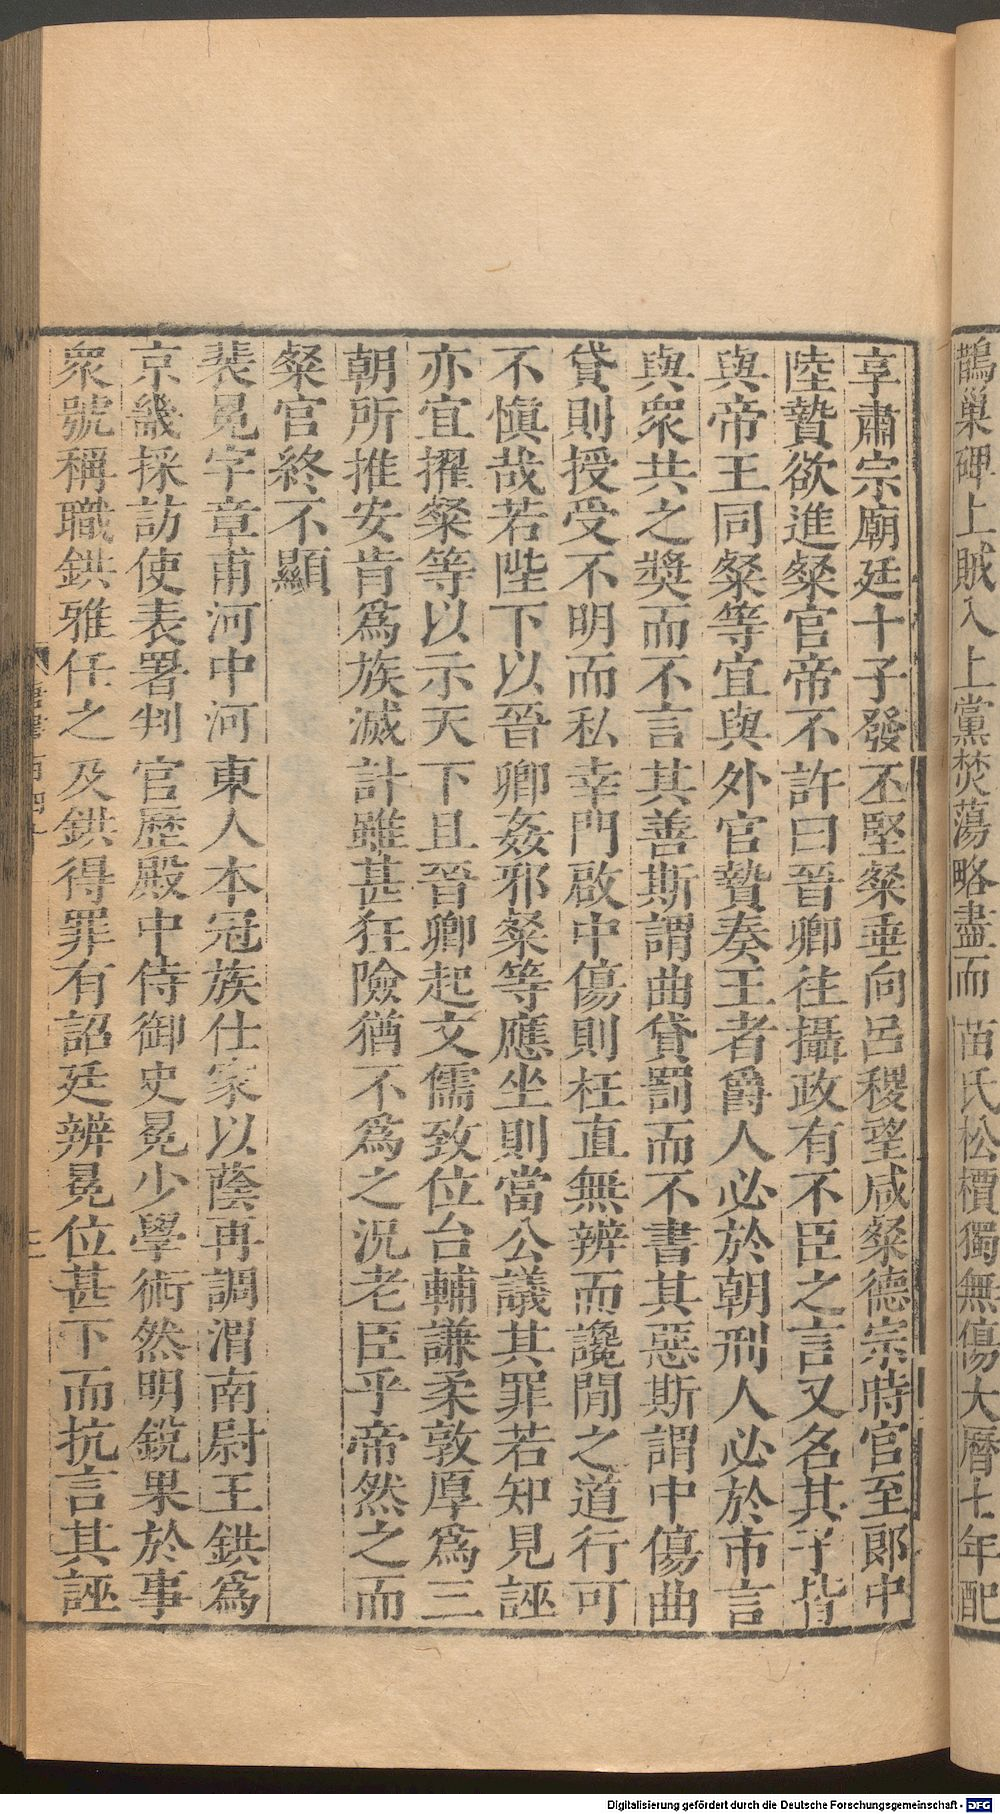 鵲巢碑上賊入上黨焚蕩略盡而苗氏松檟獨無傷大曆七年配
享肅宗廟廷十子發丕堅粲垂向呂稷望咸粲德宗時官至郞中
陸贄欲進粲官帝不許曰晉卿往攝政有不臣之言又名其子皆
與帝王同粲等宜與外官贄奏王者爵人必於朝刑人必於市言
與衆共之奬而不言其善斯謂曲貸罰而不書其惡斯謂中傷曲
貸則授受不明而私幸門啟中傷則枉直無辨而讒閒之道行可
不愼哉若陛下以晉卿姦邪粲等應坐則當公議其罪若知見誣
亦宜擢粲等以示天下且晉卿起文儒致位台輔謙柔敦厚爲三
朝所推安肯爲族滅計雖甚狂險猶不爲之況老臣乎帝然之而
粲官終不顯
裴冕字章甫河中河東人本冠族仕家以蔭再調渭南尉王鉷爲
京畿採訪使表署判官歷殿中侍御史冕少學術然明銳果於事
衆號稱職鉷雅任之及鉷得罪有詔廷辨冕位甚下而抗言其誣
Digitalisierung gefördert durch die Deutsche Forschungsgemeinschaft - DFG